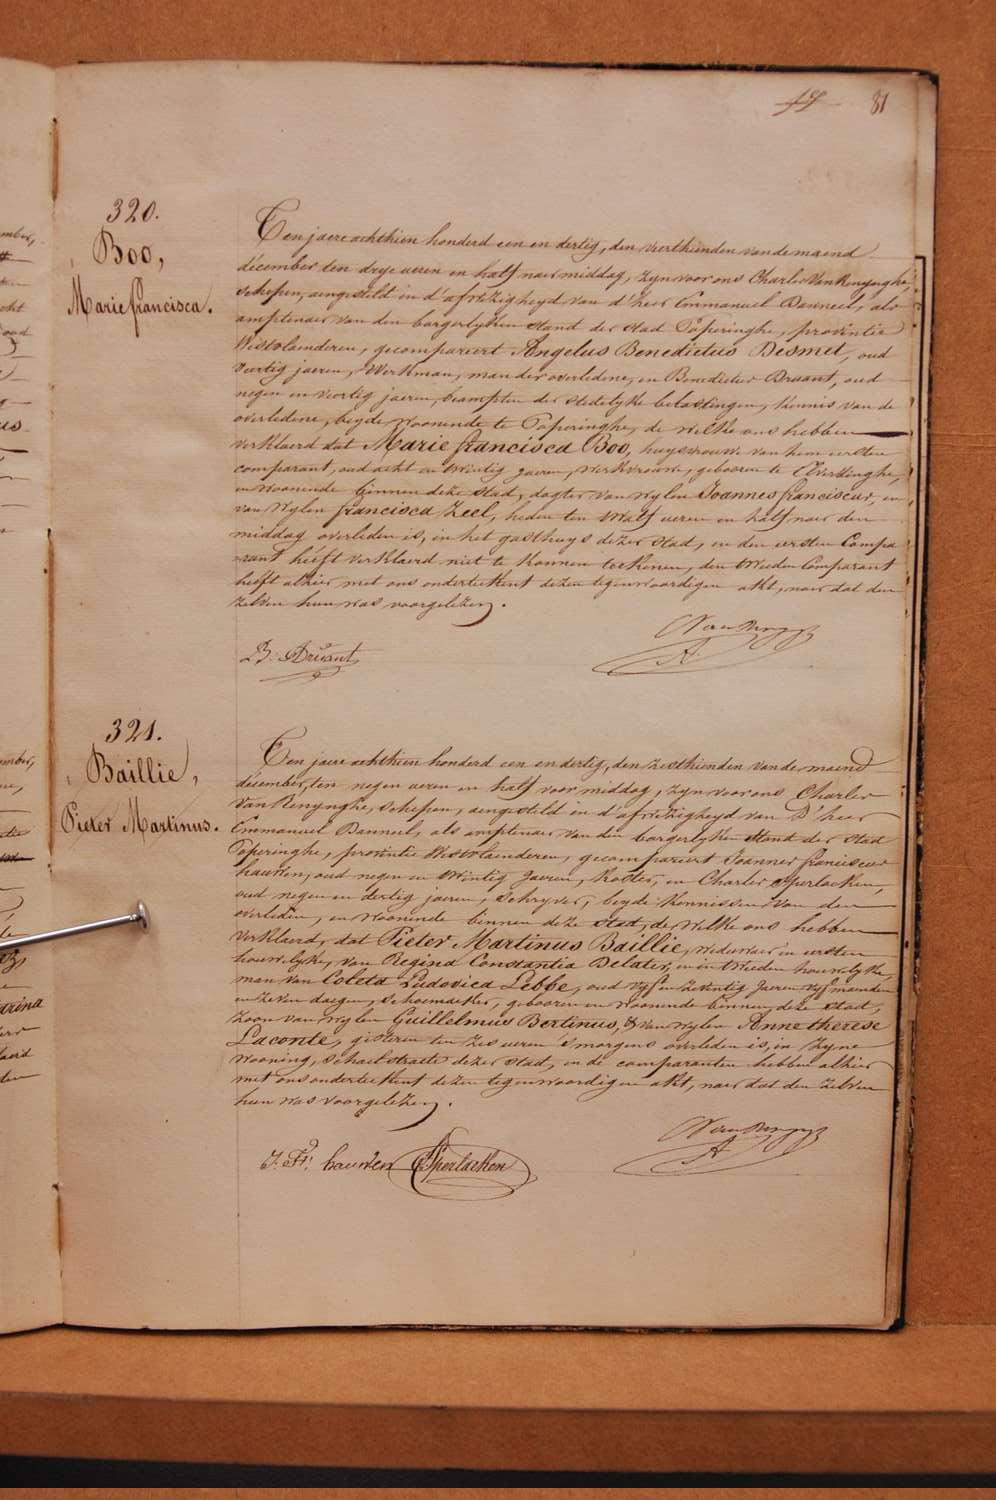 81
320.
Boo,
Marie francisca.
Ten jaere achthien honderd een en dertig, den veerthienden van de maend
décember ten drye ueren en half naermiddag, zyn voor ons Charles Van Renynghe,
schepen, aengesteld in d'afwezigheyd van d'heer Emmanuel Banneel, als
amptenaer van den borgerlyken stand der stad Poperinghe, provintie
Westvlaenderen, gecompareert Angelus Benedictus Desmet, oud
veertig jaeren, Werkman, man der overledene, en Benedictus Druant, oud
negen en veertig jaeren, beampten der stedelyke belastingen, kennis van de
overledene, beyde woonende te Poperinghe, de welke ons hebben
verklaerd dat Marie francisca Boo, huysvrouw van hem eersten
comparant, oud acht en twintig jaeren, werkvrouw, geboren te Elverdinghe,
en woonende binnen deze stad, dogter van wylen Joannes franciscus, en
van Wylen francisca Zeel, heden ten twalf ueren en half naer den
middag overleden is, in het gasthuys dezer stad, en den eersten Compa
rant heeft verklaerd niet te konnen teekenen, den tweeden Comparant
heeft alhier met ons onderteekent dezen tegenwoordigen akt, naer dat den
zelven hun was voorgelezen.
B. Druant
321.
Baillie,
Pieter Martinus.
Ten jaere achthien honderd een en dertig, den zesthienden van de maend
décember, ten negen ueren en half voor middag, zyn voor ons Charles
Van Renynghe, schepen, aengesteld in d'afwezigheyd van D'heer
Emmanuel Banneel, als amptenaer van den borgerlyken stand der stad
Poperinghe, provintie Westvlaenderen, gecompareert Joannes franciscus
Cauwen, oud negen en twintig jaeren, koster, en Charles Sperlaeken,
oud negen en dertig jaeren, schryver, beyde kennissen van den
overleden, en woonende binnen deze stad, de welke ons hebben
verklaerd, dat Pieter Martinus Baillie, weduwaer in eersten
houwelyke, van Regina Constantia Delater, en in tweeden houwelyke,
man van Coleta Ludovica Lebbe, oud vyf en zeventig jaeren vyf maenden
en zeven daegen, schoenmaeker, geboren en woonende binnen deze stad,
zoon van wylen Guillelmus Bertinus, & van wylen Anne therese
Laconte, gisteren ten zes ueren 's morgens overleden is, in zyne
wooning, schaelstraete dezer stad, en de comparanten hebben alhier
met ons onderteekent dezen tegenwoordigen akt, naer dat den zelven
hun was voorgelezen.
J. Fr. Cauwen C Sperlaeken